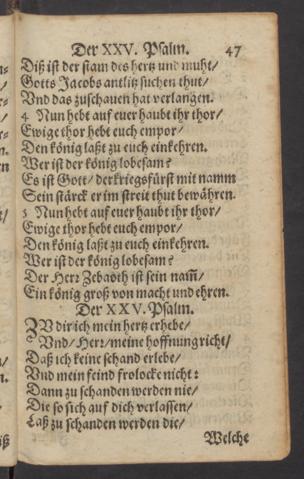 Der XXV. Psalm. 47
Diß ist der stam des hertz und muht/
Gotts Jacobs antlitz suchen thut/
Vnd das zuschauen hat verlangen.
4 Nun hebt auf euer haubt ihr thor/
Ewige thor hebt euch empor/
Den könig laßt zu euch einkehren.
Wer ist der könig lobesam?
Es ist Gott/ der kriegsfürst mit namm
Sein stärck er im streit thut bewähren.
5 Nun hebt auf euer haubt ihr thor/
Ewige thor hebt euch empor/
Den könig laßt zu euch einkehren.
Wer ist der könig lobesam?
Der Herr Zebaoth ist sein nam̃/
Ein könig groß von macht und ehren.
Der XXV. Psalm.
ZV dir ich mein hertz erhebe/
Vnd/ Herr/ meine hoffnung richt/
Daß ich keine schand erlebe/
Vnd mein feind frolocke nicht:
Dann zu schanden werden nie/
Die so sich auf dich verlassen/
Laß zu schanden werden die/
Welche